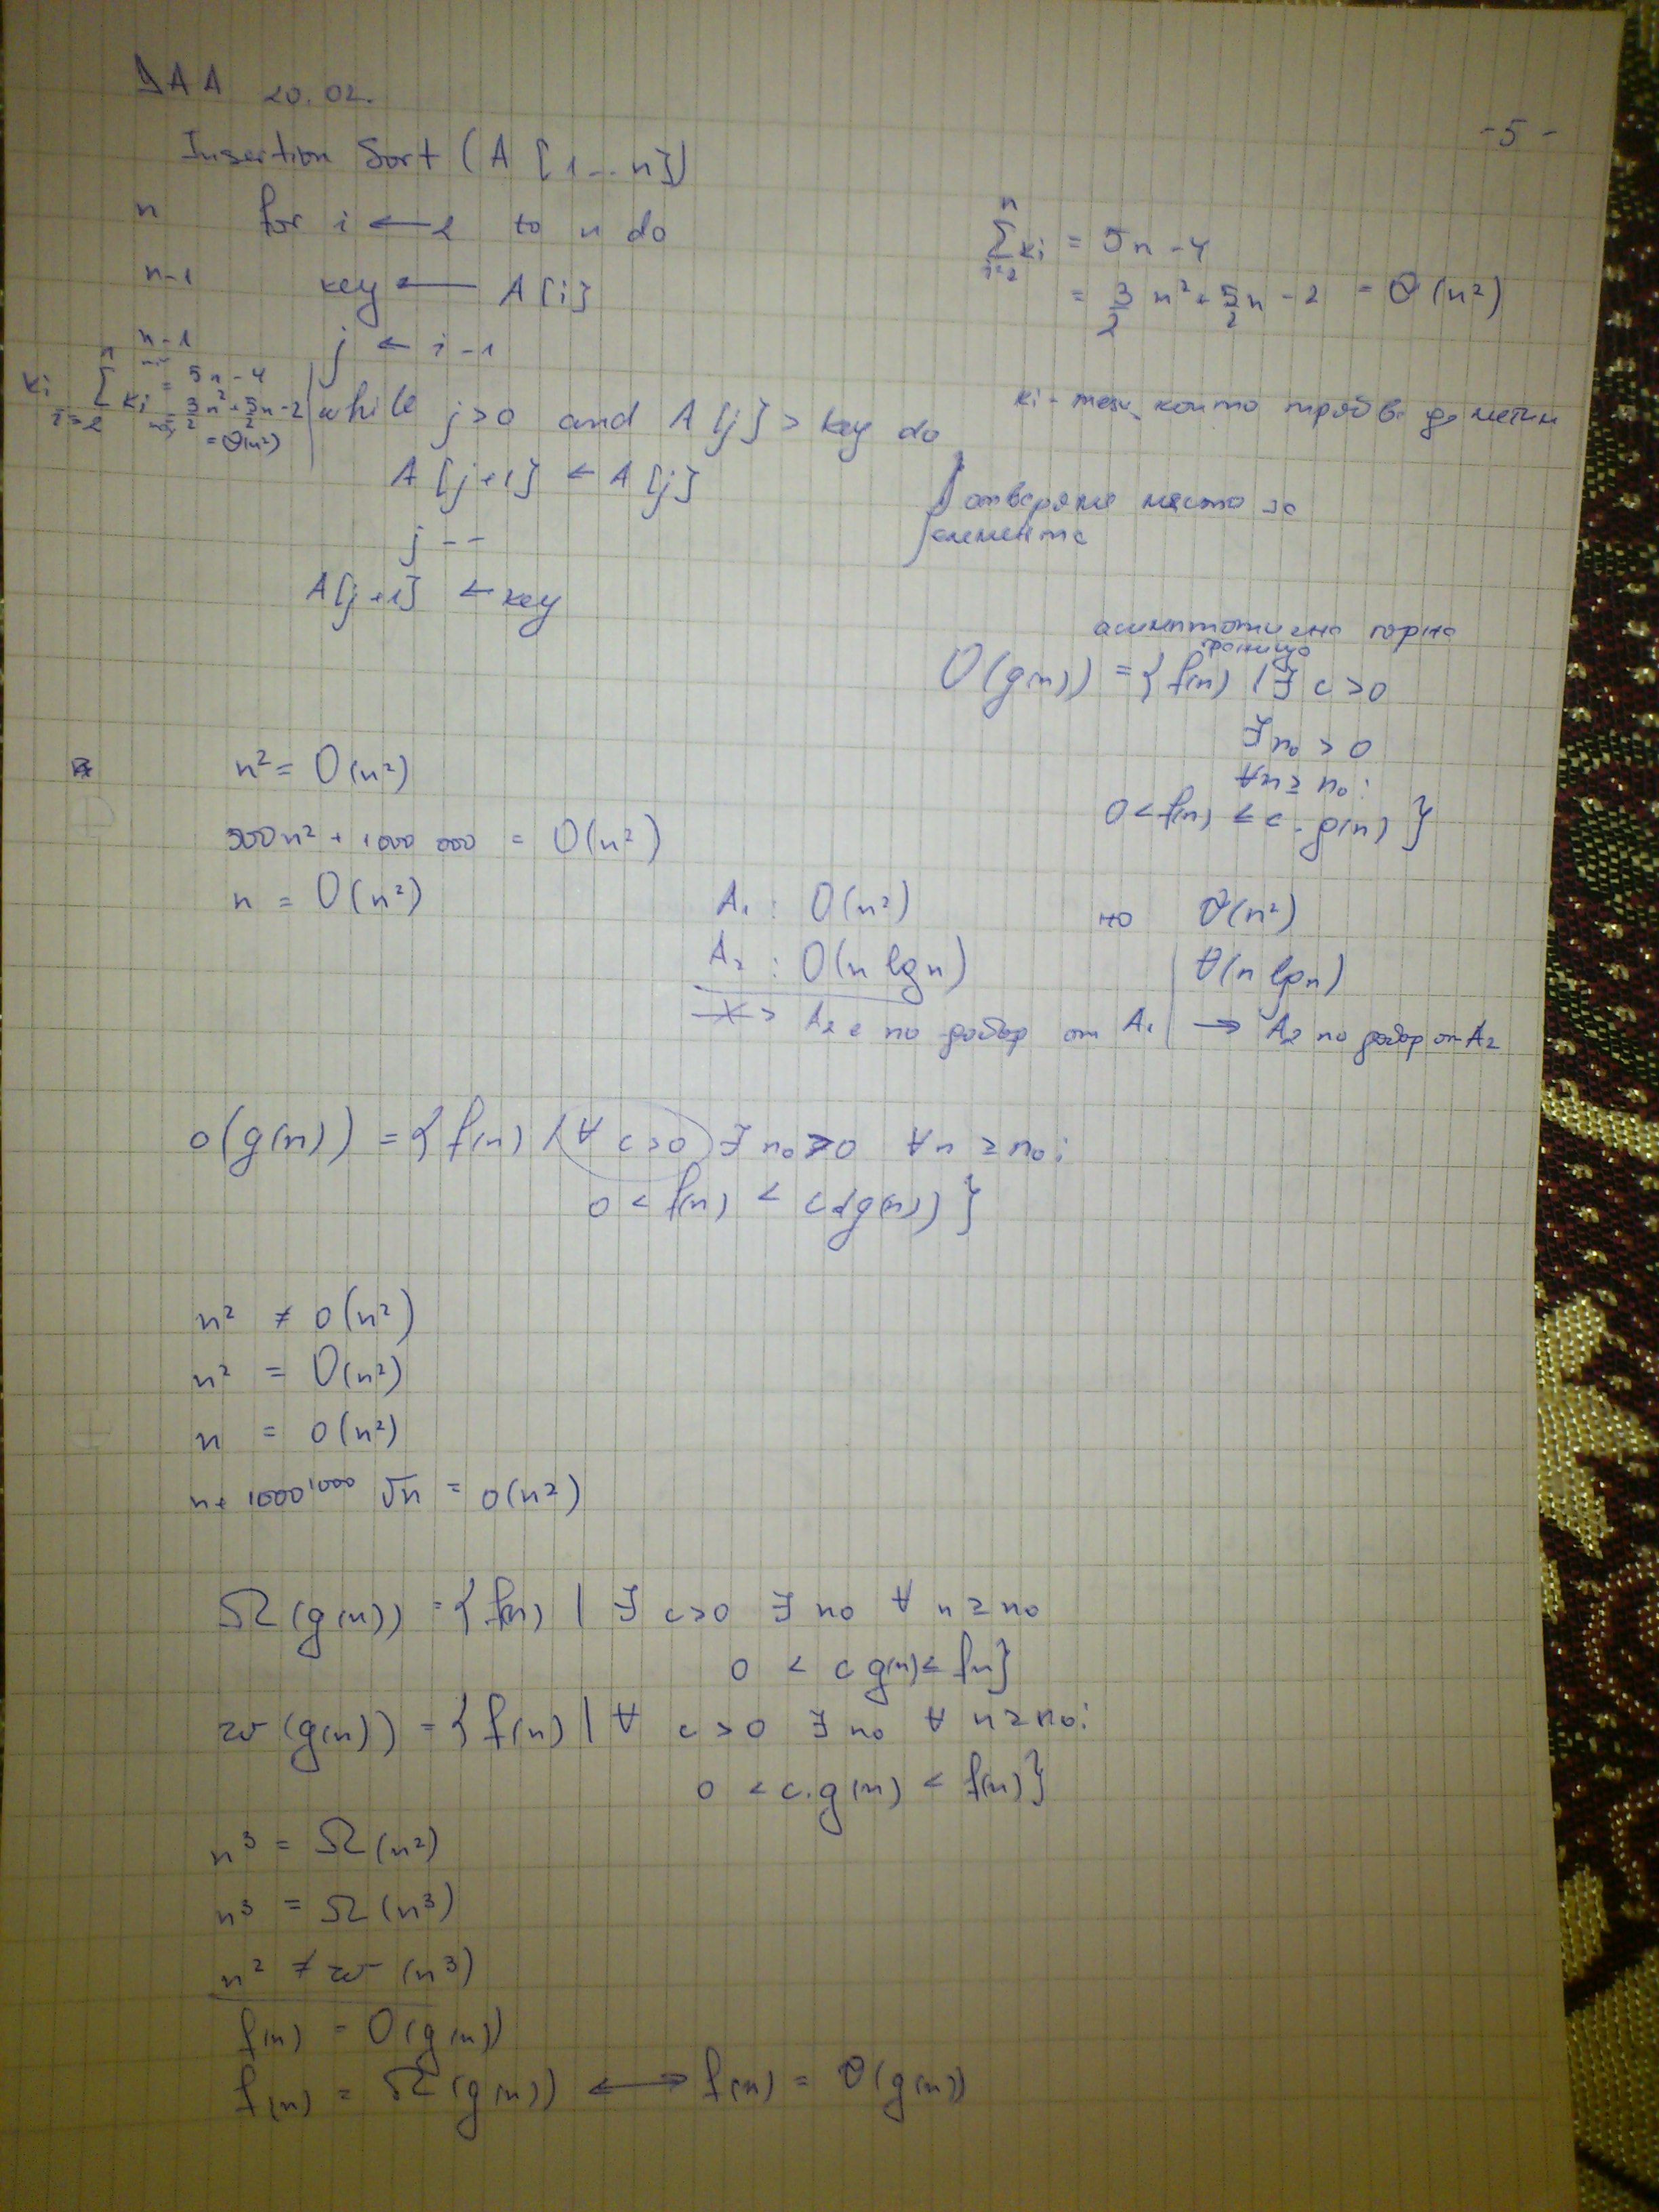 ДАА 20.02.
-5-
Insertion Sort (A [1...n])
n for i ← 2 to n do
n-1 key ← A[i]
n-1 j ← i-1
ki Σ_{i=2}^{n} ki = 5n-4
= 3/2 n² + 5/2 n - 2
= Θ(n²)
while j>0 and A[j] > key do
A[j+1] ← A[j]
j--
A[j+1] ← key
Σ_{i=2}^{n} ki = 5n-4
= 3/2 n² + 5/2 n - 2 = Θ(n²)
ki - тези, които трябва да местим
отваряме място за
елемента
асимптотична горна
граница
O(g(n)) = {f(n) | ∃ c>0
∃ n₀ > 0
∀n ≥ n₀:
0 < f(n) ≤ c.g(n)}
n² = O(n²)
500n² + 1000 000 = O(n²)
n = O(n²)
A₁ : O(n²) но Θ(n²)
A₂ : O(n lgn) Θ(n lgn)
A₂ е по добър от A₁ → A₂ по добър от A₂
o(g(n)) = {f(n) | ∀ c>0 ∃ n₀>0 ∀n ≥ n₀:
0 < f(n) < c g(n))}
n² ≠ o(n²)
n² = O(n²)
n = o(n²)
n + 1000¹⁰⁰⁰ √n = o(n²)
Ω(g(n)) = {f(n) | ∃ c>0 ∃ n₀ ∀ n ≥ n₀
0 < c g(n) ≤ f(n)}
ω(g(n)) = {f(n) | ∀ c>0 ∃ n₀ ∀ n ≥ n₀:
0 < c.g(n) < f(n)}
n³ = Ω(n²)
n³ = Ω(n³)
n² ≠ ω(n³)
f(n) = O(g(n))
f(n) = Ω(g(n)) ⟷ f(n) = Θ(g(n))